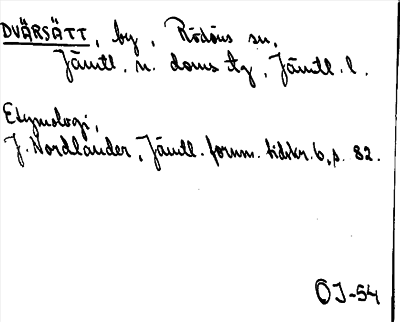 DVÄRSÄTT, by, Rödöns sn,
Jämtl. n. doms tg, Jämtl. l.
Etymologi,
J. Nordlander, Jämtl. fornm. tidskr. 6, s. 82.
OJ-54